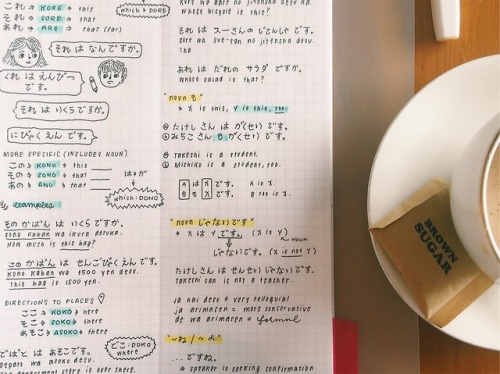 これ → KORE → this
それ → SORE → that
あれ → ARE → that (far)
which → DORE
それ は なん ですか。
くれ は えんぴつ
です。
それ は いくら ですか。
にひゃく えん です。
MORE SPECIFIC (INCLUDES NOUN)
この → KONO → this
その → SONO → that
あの → ANO → that
which: DONO
examples
その かばん は いくら ですか。
sono kaban wa ikura desuka.
How much is this bag?
この かばん は せんごひゃくえん です。
kono kaban wa 1500 yen desu.
This bag is 1500 yen.
DIRECTIONS TO PLACES
ここ → KOKO → here
そこ → SOKO → there
あそこ → ASOKO → there
どこ: DOKO
where
でぱと は あそこ です。
depato wa asoko desu.
Whose bicycle is this?
それ は スーさんの じてんしゃ です。
sore wa sue-san no jitensha desu.
あれ は だれの サラダ ですか。
Whose salad is that?
"noun も"
→ X is this, Y is this, too.
たけし さん は がくせい です。
みちこ さん も がくせい です。
Takeshi is a student.
Michiko is a student, too.
A は X です。 A is X.
B も X です。 B too is X.
"noun じゃないです"
→ X は Y です。 (X is Y)
NOUN
じゃないです。 (X is not Y)
たけしさん は せんせい じゃないです。
Takeshi san is not a teacher.
ja nai desu = very colloquial
ja arimasen = more conservative
de wa arimasen = formal
"~ね / ~よ"
...ですね。
→ speaker is seeking confirmation
BROWN
SUGAR